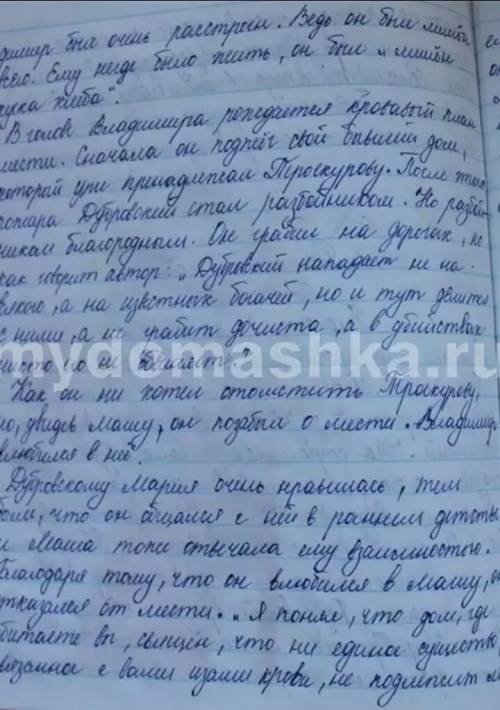 димир был очень расстроен. Ведь он был лишён
всего. Ему негде было жить, он был и „лишён
куска хлеба".
В голове Владимира рождается кровавый план
мести. Сначала он поджёг свой бывший дом,
который уже принадлежал Троекурову. После этого
пожара Дубровский стал разбойником. Но разбой-
ником благородным. Он грабил на дорогах, но
как говорит автор: „Дубровский нападает не на
всякого, а на известных богачей, но и тут делится
с ними, а не грабит дочиста, а в убийствах
никто его не обвиняет".
mydomashka.ru
Как он ни хотел отомстить Троекурову,
но, увидев Машу, он позабыл о мести. Владимир
влюбился в неё.
Дубровскому Мария очень нравилась, тем
более, что он общался с ней в раннем детстве
и Маша тоже отвечала ему взаимностью.
Благодаря тому, что он влюбился в Машу, он
отказался от мести. „Я понял, что дом, где
обитаете вы, священ, что ни единое существо,
связанное с вами узами крови, не подлежит м